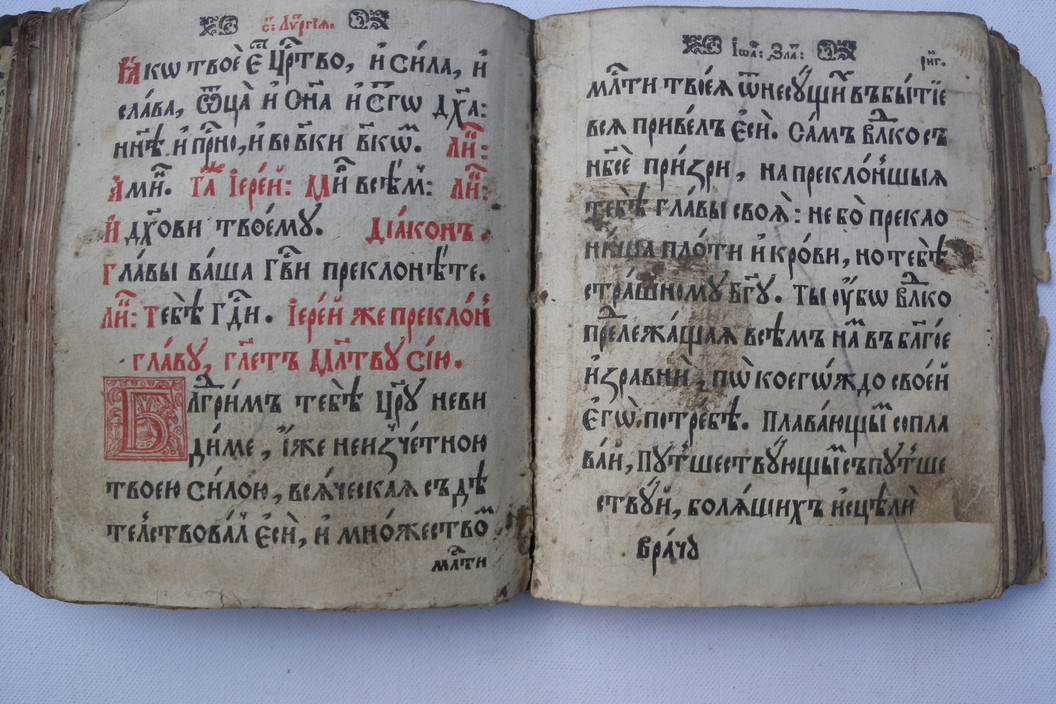 с: Лꙋргїѧ.
Ꙗкѡ твоѐ є҆́ Црⷭ҇тво, и҆ Си́ла, и҆
сла́ва, Ѿца̀ и҆ Сн҃а и҆ Ст҃гѡ дх҃а:
ни́нѣ и҆ прⷭ҇но, и҆ во вѣ́ки вѣкѡ́мъ. Ли́к:
А҆ми́н. Та́ж Іере́й: Ми́р всѣ́м: Ли́к:
И҆ дх҃ови твоемꙋ̀. Дїа́конъ.
Главы̀ ва́ша Гдⷭ҇ви преклонѣ́те.
Ли́к: Тебѣ̀ Гдⷭ҇и. Іере́й же преклон
главꙋ̀, гл҃етъ Мл҃твꙋ сїю̀.
Бл҃гдри́мъ тебѣ̀ Цр҃ю неви
ди́ме, ї҆́же неизче́тною
твоею Си́лою, всѧ́ческаѧ съдѣ
телствова́л є҆сѝ, и҆ мно́жествоⷨ
млⷭ҇ти
І҆ѡа: Зла:
рн҃г.
млⷭ҇ти твоеѧ̀ ѿнесꙋ́щиⷯ въбы́тїе
всѧ̀ приве́лъ є҆сѝ. Са́мъ влⷣко съ
нб҃сѐ при́зри, на преклон́шыѧ
тебѣ̀ главы̀ своѧ̀: небо̀ прекло
ни́ша пло́ти и҆ кро́ви, но тебѣ̀
стра́шномꙋ бг҃ꙋ. Ты ᲂу҆́бѡ влⷣко
прⷣележа́щаѧ всѣ́мъ на́м въ бл҃го́е
и҆зравнѝ, пѡ коегѡ́ждо свое́й
є҆гѡ̀ потре́бѣ. Пла́вающыⷨ сопла
ва́й, Пꙋтше́ствꙋющыⷨ съпꙋтше
ствꙋ́й, болѧ́щихъ и҆сцѣлѝ
врачꙋ̀